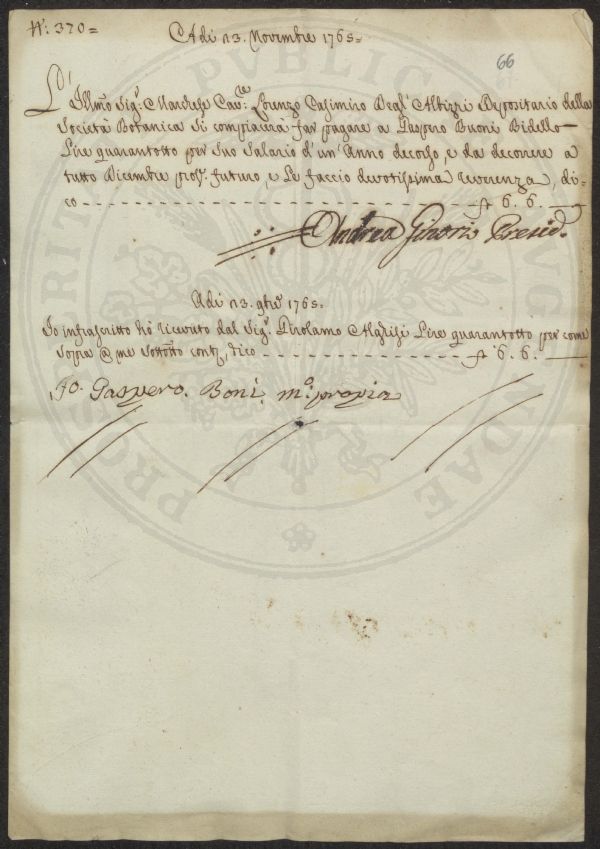 N: 370=
Adi 13. Novembre 1765=
66
L'Illmo Sig: Marchese Cav: Lorenzo Casimiro Degl' Albizzi Depositario della
Società Botanica Si compiacerà far pagare a Gaspero Buoni Bidello
Lire quarantotto per Suo Salario d'un Anno decorso, e da decorrere a
tutto Dicembre pross. futuro, e Le faccio devotissima reverenza, di-
co 6. 6.
Andrea Ginori Presid.
Adi 13. 9bre 1765.
Io infrascritto hò ricevuto dal Sig: Girolamo Lire quarantotto per come
Sopra @ me contj, dico 6. 6.
Io. Gaspero. Boni. mo. propia
PROSPERITATI PUBLICAE AUGENDAE